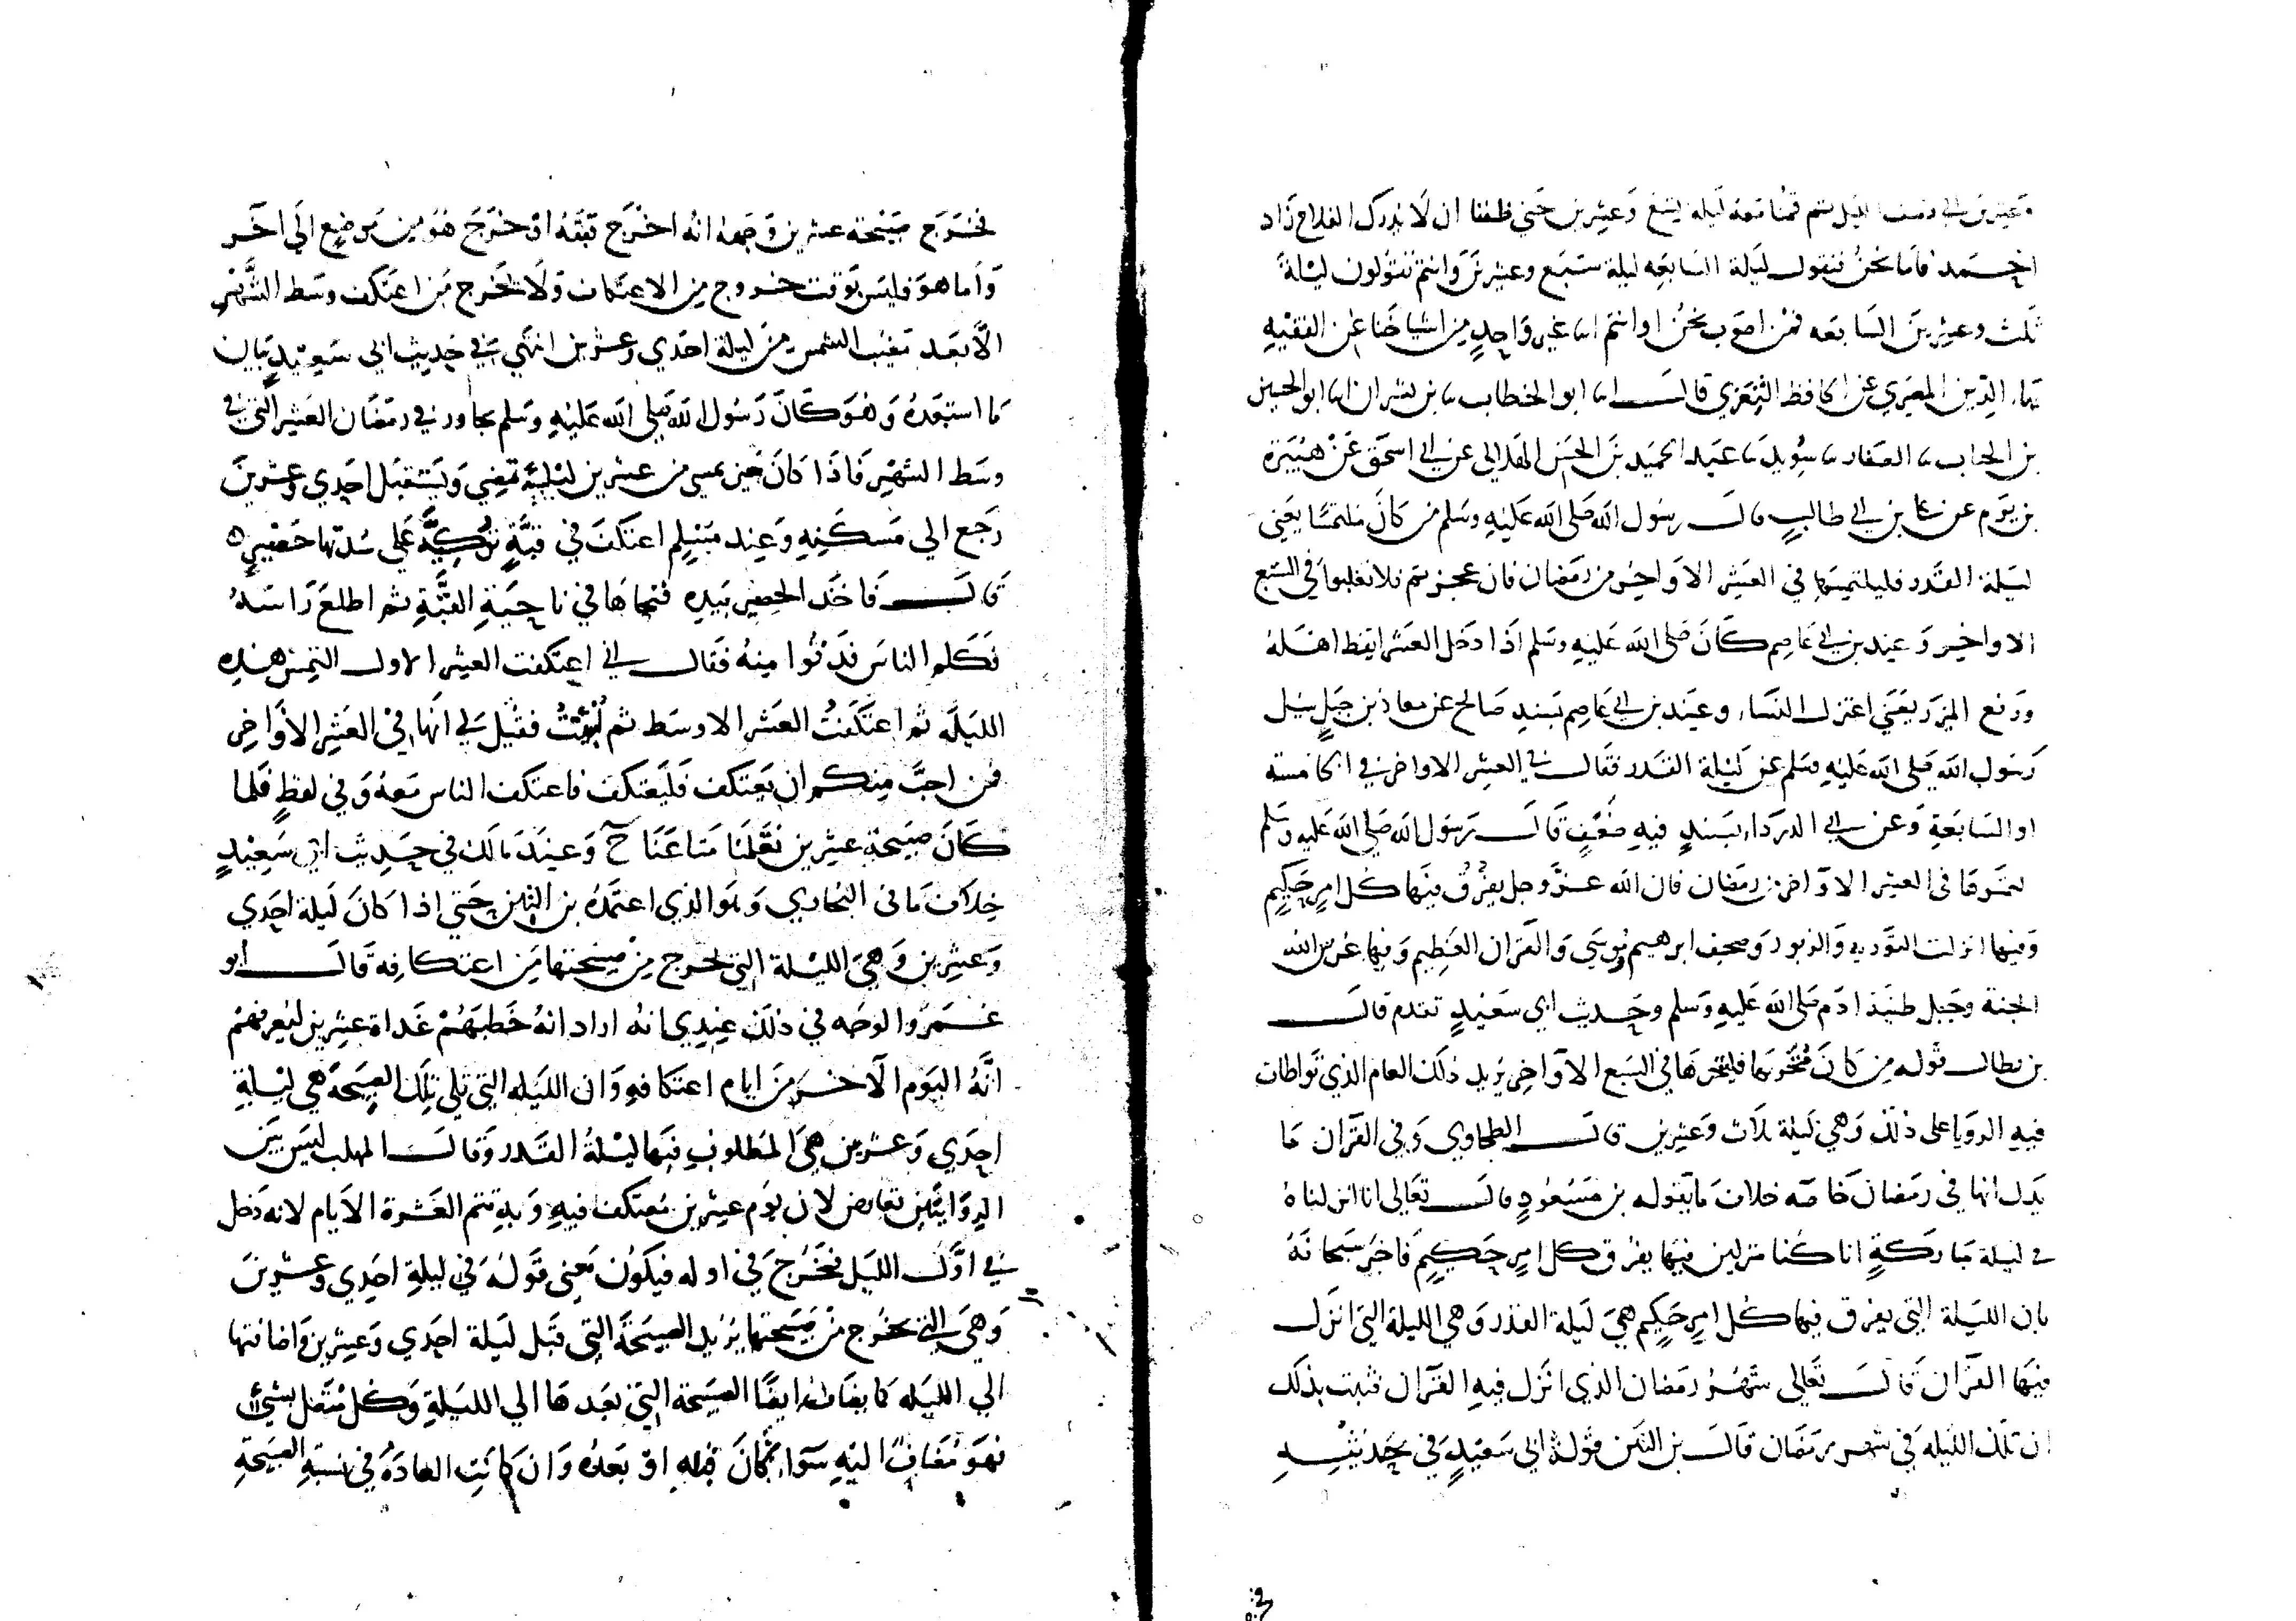 وعشرين الى نصف الليل ثم قمنا معه ليلة سبع وعشرين حتى ظننا ان لا ندرك الفلاح زاد
احمد فاما نحن فنقول ليلة السابعه ليلة سبع وعشرين وانتم تقولون ليلة
ثلث وعشرين السابعه فمن اصوب نحن او انتم انبا غير واحد من اشياخنا عن الفقيه
بهاء الدين المصري عن الحافظ الثغري قال انبا ابو الخطاب نبا بن بشران انبا ابو الحسين
بن الحباب نبا الصفار نبا سويد نبا عبد الحميد بن الحسن الهلالي عن ابي اسحق عن هبيرة
بن يريم عن علي بن ابي طالب قال رسول الله صلى الله عليه وسلم من كان ملتمسا يعني
ليلة القدر فليلتمسها في العشر الاواخر من رمضان فان عجزتم فلا تغلبوا في السبع
الاواخر وعند بن ابي عاصم كان صلى الله عليه وسلم اذا دخل العشر ايقظ اهله
ورفع المئزر يعني اعتزل النساء وعند بن ابي عاصم بسند صالح عن معاذ بن جبل سئل
رسول الله صلى الله عليه وسلم عن ليلة القدر فقال في العشر الاواخر في الخامسة
او السابعة وعن ابي الدرداء بسند فيه ضعف قال رسول الله صلى الله عليه وسلم
تحروها في العشر الاواخر من رمضان فان الله عز وجل يفرق فيها كل امر حكيم
وفيها انزلت التوريه والزبور وصحف ابرهيم وموسى والقران العظيم وفيها غرس الله
الجنة وجبل طينة ادم صلى الله عليه وسلم وحديث ابي سعيد تقدم قال
بن بطال قوله من كان متحريها فليتحرها في السبع الاواخر يريد ذلك العام الذي تواطات
فيه الرويا على ذلك وهي ليلة ثلاث وعشرين قال الطحاوي وفي القران ما
يدل انها في رمضان خاصه خلاف ما يقوله بن مسعود قال تعالى انا انزلناه
في ليلة مباركة انا كنا منزلين فيها يفرق كل امر حكيم فاخبر سبحانه
بان الليلة التي يفرق فيها كل امر حكيم هي ليلة القدر وهي الليلة التي انزل
فيها القران قال تعالى شهر رمضان الذي انزل فيه القران فثبت بذلك
ان تلك الليله في شهر رمضان قال بن التين قوله ابي سعيد في حديثه
فخرج صبيحة عشرين وجهه انه اخرج قبته او خرج هو من موضع الى اخر
واما هو فليس بوقت خروج من الاعتكاف ولا يخرج من اعتكف وسط الشهر
الا بعد تغيب الشمس من ليلة احدى وعشرين انتهى في حديث ابي سعيد بيان
ما استبعده وهو كان رسول الله صلى الله عليه وسلم يجاور في رمضان العشر التي في
وسط الشهر فاذا كان حين يمسي من عشرين ليلة تمضي ويستقبل احدي وعشرين
رجع الى مسكنه وعند مسلم اعتكف في قبة تركية على سدتها حصير
قال فاخذ الحصير بيده فنحاها في ناحية القبة ثم اطلع راسه
فكلم الناس فدنوا منه فقال اني اعتكفت العشر الاول التمس هذه
الليله ثم اعتكفت العشر الاوسط ثم اتيت فقيل لي انها في العشر الاواخر
فمن احب منكم ان يعتكف فليعتكف فاعتكف الناس معه وفي لفظ فلما
كان صبيحة عشرين نقلنا متاعنا ح وعند مالك في حديث ابي سعيد
خلاف ما في البخاري وهو الذي اعتمده بن التين حتى اذا كان ليلة احدي
وعشرين وهي الليلة التي يخرج من صبيحتها من اعتكافه قال ابو
عمر والوجه في ذلك عندي انه اراد انه خطبهم غداة عشرين ليعرفهم
انه اليوم الاخر من ايام اعتكافه وان الليله التي تلي تلك الصبيحة هي ليلة
احدي وعشرين هي المطلوب فيها ليلة القدر وقال المهلب ليس بين
الروايتين تعارض لان يوم عشرين معتكف فيه وبه تتم العشرة الايام لانه دخل
في اول الليل فخرج في اوله فيكون معنى قوله في ليلة احدي وعشرين
وهي التي يخرج من صبيحتها يريد الصبيحة التي قبل ليلة احدي وعشرين واضافتها
الى الليله كما يضاف ايضا الصبيحة التي بعدها الى الليلة وكل متصل بشيء
فهو مضاف اليه سواء كان قبله او بعده وان كانت العادة في نسبة الصبيحة